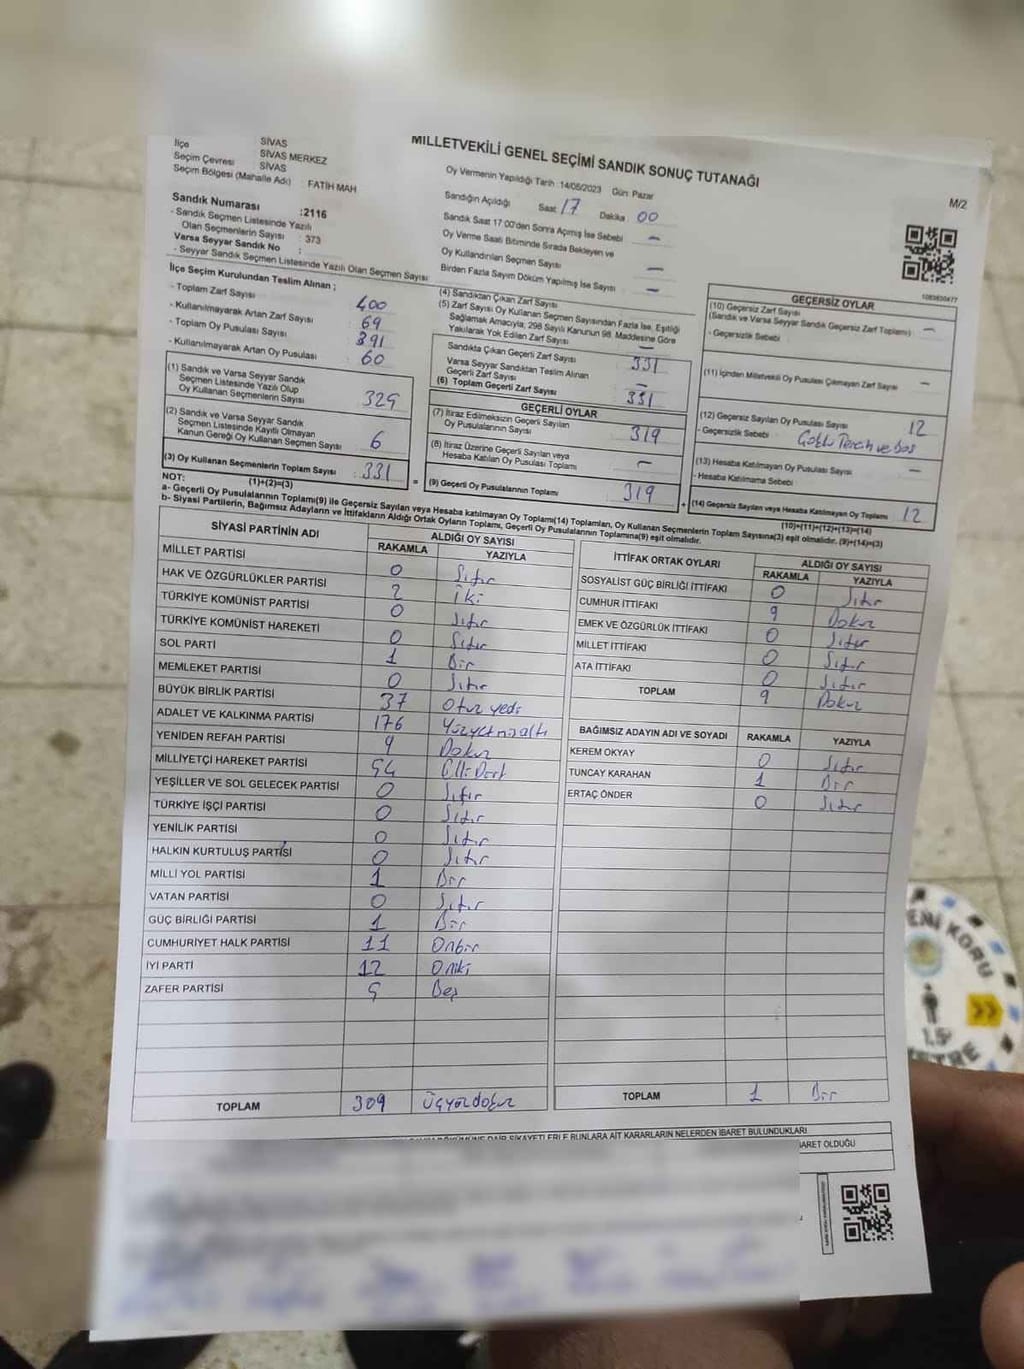 MİLLETVEKİLİ GENEL SEÇİMİ SANDIK SONUÇ TUTANAĞI
M/2
İlçe
SİVAS
SİVAS MERKEZ
Seçim Çevresi
SİVAS
Seçim Bölgesi (Mahalle Adı) : FATİH MAH
Sandık Numarası :2116
- Sandık Seçmen Listesinde Yazılı
Olan Seçmenlerin Sayısı : 373
Varsa Seyyar Sandık No :
- Seyyar Sandık Seçmen Listesinde Yazılı Olan Seçmen Sayısı
Oy Vermenin Yapıldığı Tarih : 14/05/2023 Gün: Pazar
Sandığın Açıldığı Saat 17 Dakika 00
Sandık Saat 17:00'den Sonra Açımış İse Sebebi –
Oy Verme Saati Bitiminde Sırada Bekleyen ve
Oy Kullandırılan Seçmen Sayısı –
Birden Fazla Sayım Döküm Yapılmış İse Sayısı –
1083630477
İlçe Seçim Kurulundan Teslim Alınan ;
- Toplam Zarf Sayısı 400
- Kullanılmayarak Artan Zarf Sayısı 69
- Toplam Oy Pusulası Sayısı 391
- Kullanılmayarak Artan Oy Pusulası 60
(1) Sandık ve Varsa Seyyar Sandık
Seçmen Listesinde Yazılı Olup
Oy Kullanan Seçmenlerin Sayısı 325
(2) Sandık ve Varsa Seyyar Sandık
Seçmen Listesinde Kayıtlı Olmayan
Kanun Gereği Oy Kullanan Seçmen Sayısı 6
(3) Oy Kullanan Seçmenlerin Toplam Sayısı 331
(1)+(2)=(3)
(4) Sandıktan Çıkan Zarf Sayısı
(5) Zarf Sayısı Oy Kullanan Seçmen Sayısından Fazla İse, Eşitliği
Sağlamak Amacıyla, 298 Sayılı Kanunun 98. Maddesine Göre
Yakılarak Yok Edilen Zarf Sayısı –
Sandıkta Çıkan Geçerli Zarf Sayısı 331
Varsa Seyyar Sandıktan Teslim Alınan
Geçerli Zarf Sayısı –
(6) Toplam Geçerli Zarf Sayısı 331
GEÇERLİ OYLAR
(7) İtiraz Edilmeksizin Geçerli Sayılan
Oy Pusulalarının Sayısı 319
(8) İtiraz Üzerine Geçerli Sayılan veya
Hesaba Katılan Oy Pusulası Toplamı –
(9) Geçerli Oy Pusulalarının Toplamı 319
GEÇERSİZ OYLAR
(10) Geçersiz Zarf Sayısı
(Sandık ve Varsa Seyyar Sandık Geçersiz Zarf Toplamı) –
- Geçersizlik Sebebi
(11) İçinden Milletvekili Oy Pusulası Çıkmayan Zarf Sayısı –
(12) Geçersiz Sayılan Oy Pusulası Sayısı 12
- Geçersizlik Sebebi Çoklu Tercih ve Boş
(13) Hesaba Katılmayan Oy Pusulası Sayısı –
- Hesaba Katılmama Sebebi
(14) Geçersiz Sayılan veya Hesaba Katılmayan Oy Toplamı 12
(10)+(11)+(12)+(13)=(14)
NOT:
a- Geçerli Oy Pusulalarının Toplamı(9) ile Geçersiz Sayılan veya Hesaba katılmayan Oy Toplamı(14) Toplamları, Oy Kullanan Seçmenlerin Toplam Sayısına(3) eşit olmalıdır. (9)+(14)=(3)
b- Siyasi Partilerin, Bağımsız Adayların ve İttifakların Aldığı Ortak Oyların Toplamı, Geçerli Oy Pusulalarının Toplamına(9) eşit olmalıdır.
SİYASİ PARTİNİN ADI ALDIĞI OY SAYISI
RAKAMLA YAZIYLA
MİLLET PARTİSİ 0 Sıfır
HAK VE ÖZGÜRLÜKLER PARTİSİ 2 İki
TÜRKİYE KOMÜNİST PARTİSİ 0 Sıfır
TÜRKİYE KOMÜNİST HAREKETİ 0 Sıfır
SOL PARTİ 1 Bir
MEMLEKET PARTİSİ 0 Sıfır
BÜYÜK BİRLİK PARTİSİ 37 Otuz yedi
ADALET VE KALKINMA PARTİSİ 176 Yüzyetmişaltı
YENİDEN REFAH PARTİSİ 9 Dokuz
MİLLİYETÇİ HAREKET PARTİSİ 54 Elli Dört
YEŞİLLER VE SOL GELECEK PARTİSİ 0 Sıfır
TÜRKİYE İŞÇİ PARTİSİ 0 Sıfır
YENİLİK PARTİSİ 0 Sıfır
HALKIN KURTULUŞ PARTİSİ 0 Sıfır
MİLLİ YOL PARTİSİ 1 Bir
VATAN PARTİSİ 0 Sıfır
GÜÇ BİRLİĞİ PARTİSİ 1 Bir
CUMHURİYET HALK PARTİSİ 11 Onbir
İYİ PARTİ 12 Oniki
ZAFER PARTİSİ 5 Beş
TOPLAM 309 Üçyüzdokuz
İTTİFAK ORTAK OYLARI ALDIĞI OY SAYISI
RAKAMLA YAZIYLA
SOSYALİST GÜÇ BİRLİĞİ İTTİFAKI 0 Sıfır
CUMHUR İTTİFAKI 9 Dokuz
EMEK VE ÖZGÜRLÜK İTTİFAKI 0 Sıfır
MİLLET İTTİFAKI 0 Sıfır
ATA İTTİFAKI 0 Sıfır
TOPLAM 9 Dokuz
BAĞIMSIZ ADAYIN ADI VE SOYADI RAKAMLA YAZIYLA
KEREM OKYAY 0 Sıfır
TUNCAY KARAHAN 1 Bir
ERTAÇ ÖNDER 0 Sıfır
TOPLAM 1 Bir
DAİR ŞİKAYETLERLE BUNLARA AİT KARARLARIN NELERDEN İBARET BULUNDUKLARI
İBARET OLDUĞU
YENİ KORU
1,5
METRE